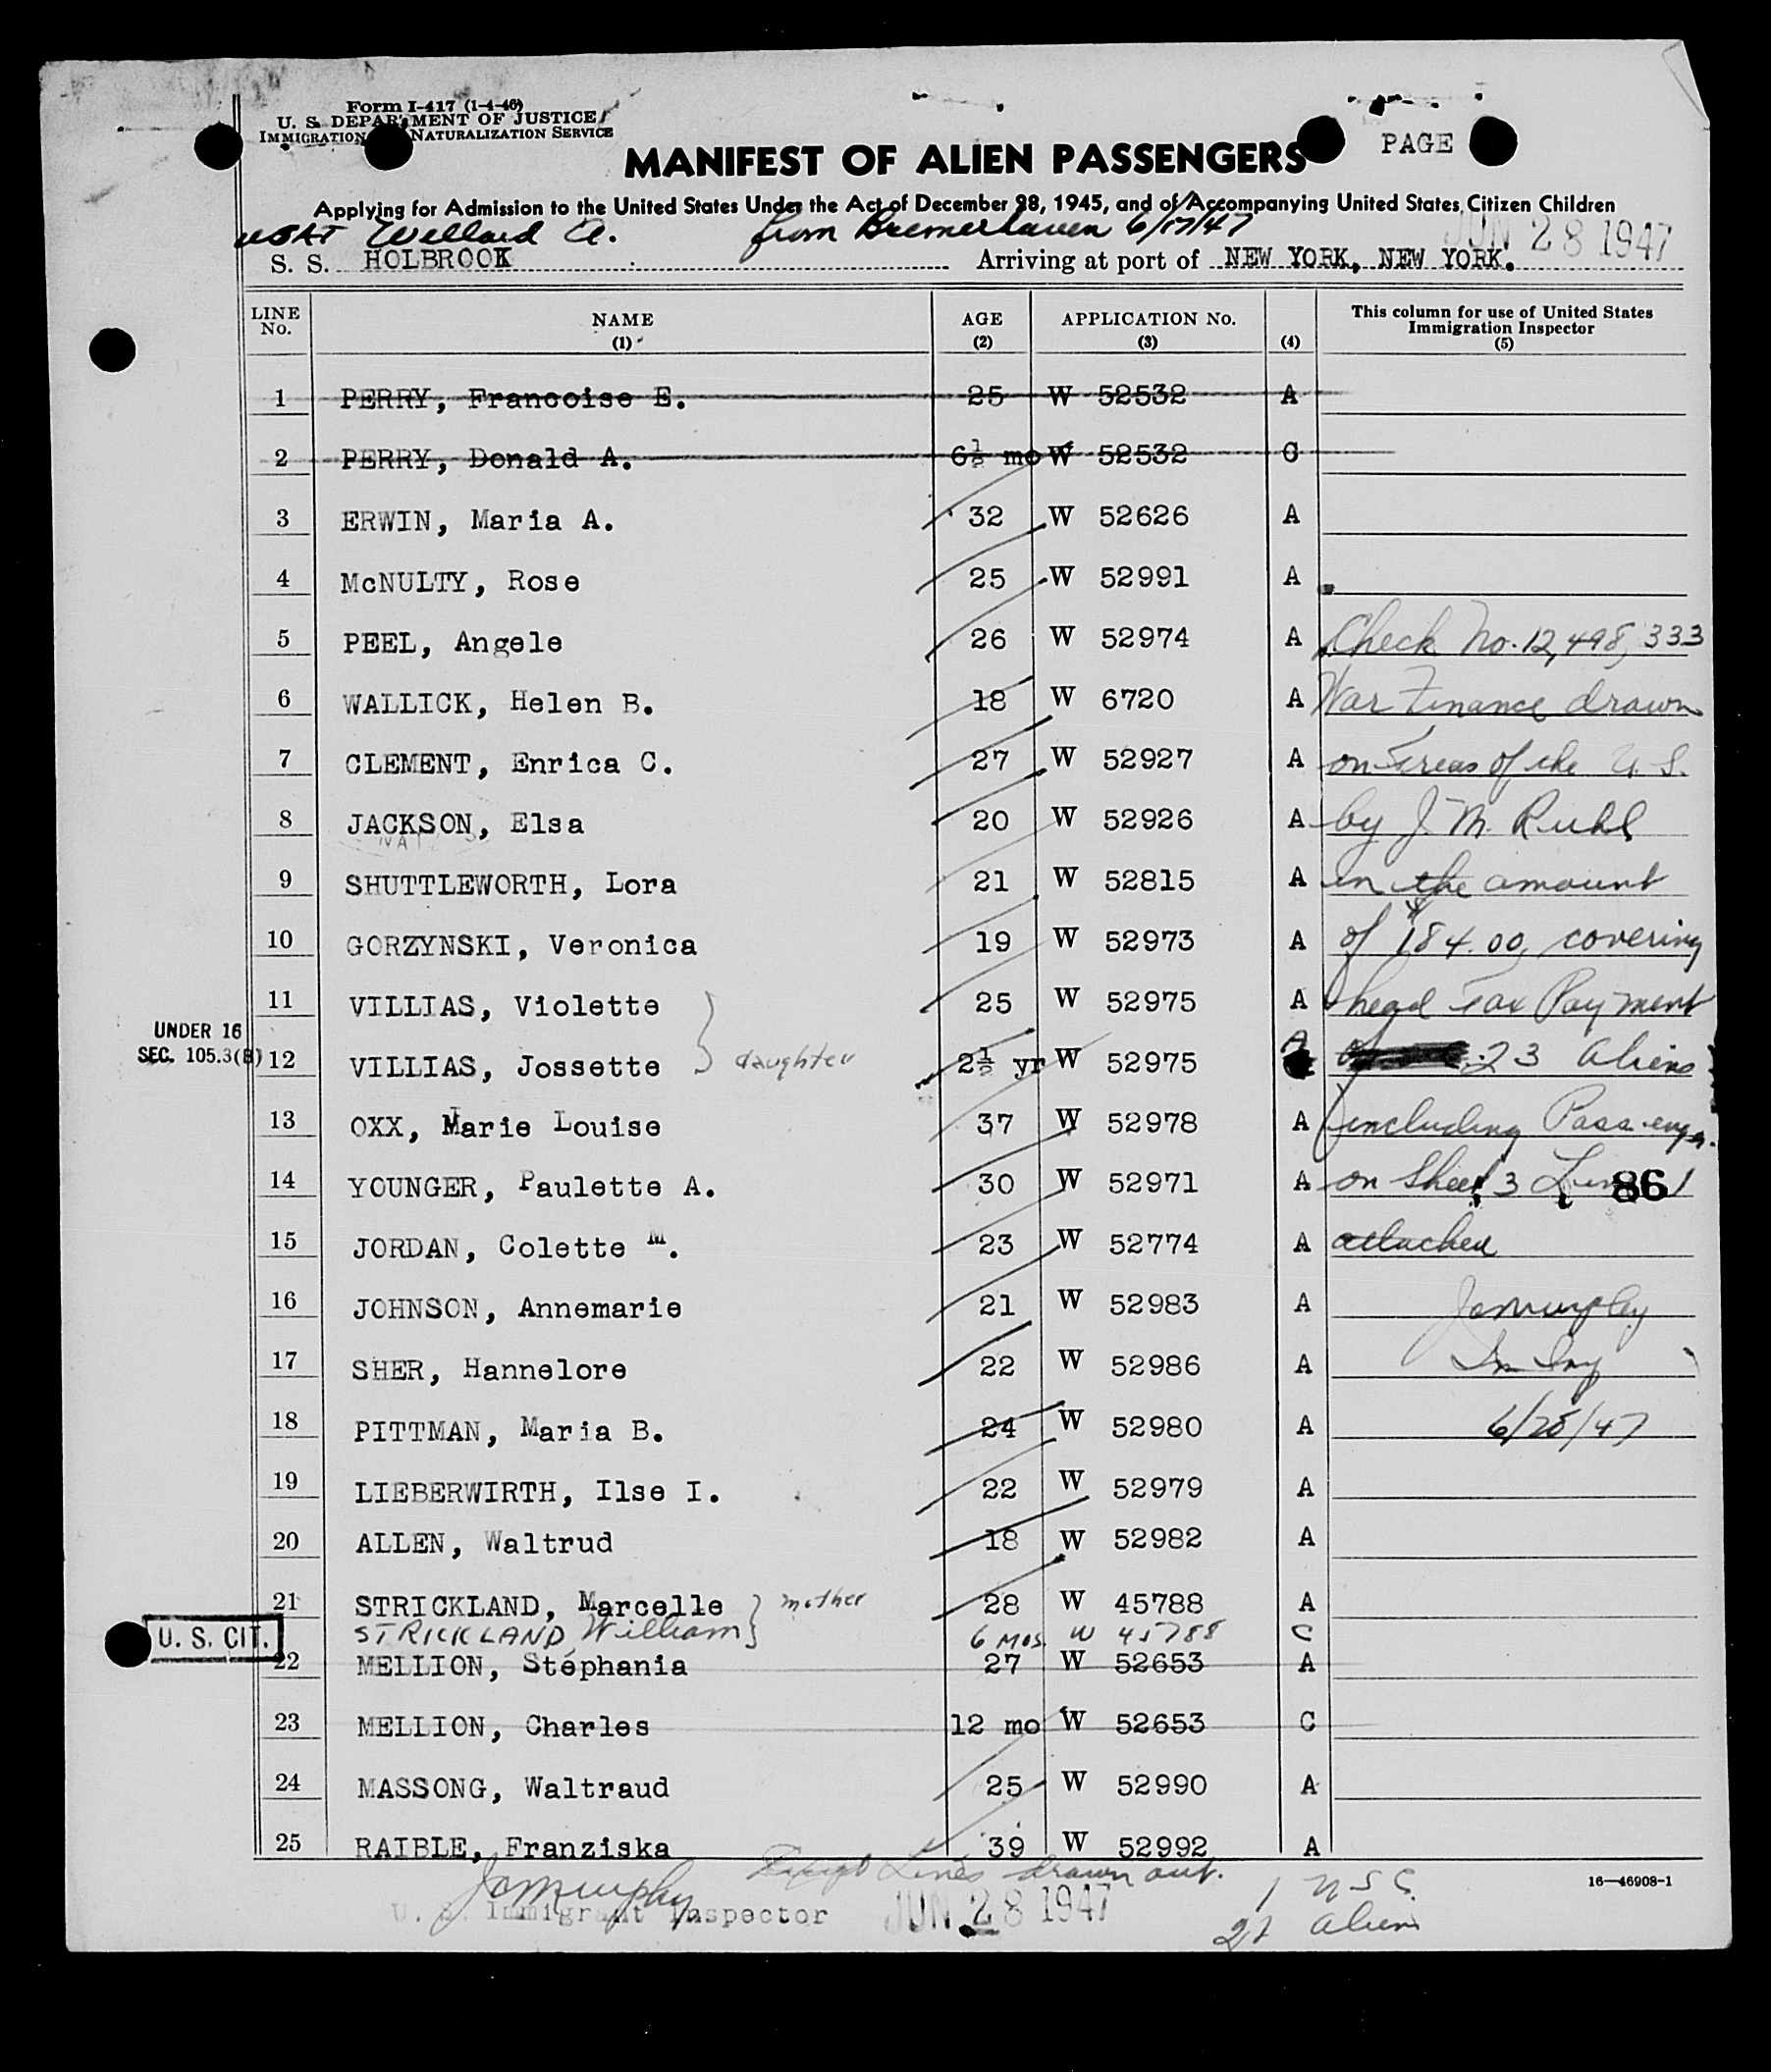 Form I-417 (1-4-46)
U. S. DEPARTMENT OF JUSTICE
IMMIGRATION NATURALIZATION SERVICE
PAGE
MANIFEST OF ALIEN PASSENGERS
Applying for Admission to the United States Under the Act of December 28, 1945, and of Accompanying United States Citizen Children
USAT Willard A. from Bremerhaven 6/17/47
JUN 28 1947
S. S. HOLBROOK Arriving at port of NEW YORK, NEW YORK.
LINE No. NAME (1) AGE (2) APPLICATION No. (3) (4) This column for use of United States Immigration Inspector (5)
1 PERRY, Francoise E. 25 W 52532 A
2 PERRY, Donald A. 6½ mo W 52532 C
3 ERWIN, Maria A. 32 W 52626 A
4 McNULTY, Rose 25 W 52991 A
5 PEEL, Angele 26 W 52974 A Check No. 12,498,333
6 WALLICK, Helen B. 18 W 6720 A War Finance drawn
7 CLEMENT, Enrica C. 27 W 52927 A on Treas of the U.S.
8 JACKSON, Elsa 20 W 52926 A by J. M. Ruhl
9 SHUTTLEWORTH, Lora 21 W 52815 A in the amount
10 GORZYNSKI, Veronica 19 W 52973 A of $184.00, covering
11 VILLIAS, Violette 25 W 52975 A head Tax Payment
UNDER 16
SEC. 105.3(B) 12 VILLIAS, Jossette daughter 2½ yr W 52975 A 23 Aliens
13 OXX, Marie Louise 37 W 52978 A including Passenger
14 YOUNGER, Paulette A. 30 W 52971 A on Sheet 3 Line 1
861
15 JORDAN, Colette M. 23 W 52774 A attached
16 JOHNSON, Annemarie 21 W 52983 A JaMurphy
17 SHER, Hannelore 22 W 52986 A Im Insp
18 PITTMAN, Maria B. 24 W 52980 A 6/28/47
19 LIEBERWIRTH, Ilse I. 22 W 52979 A
20 ALLEN, Waltrud 18 W 52982 A
21 STRICKLAND, Marcelle mother 28 W 45788 A
U. S. CIT. STRICKLAND, William 6 mos. W 45788 C
22 MELLION, Stephania 27 W 52653 A
23 MELLION, Charles 12 mo W 52653 C
24 MASSONG, Waltraud 25 W 52990 A
25 RAIBLE, Franziska 39 W 52992 A
JaMurphy Except Lines drawn out.
U. S. Immigrant Inspector JUN 28 1947
1 U S C
21 aliens
16—46908-1